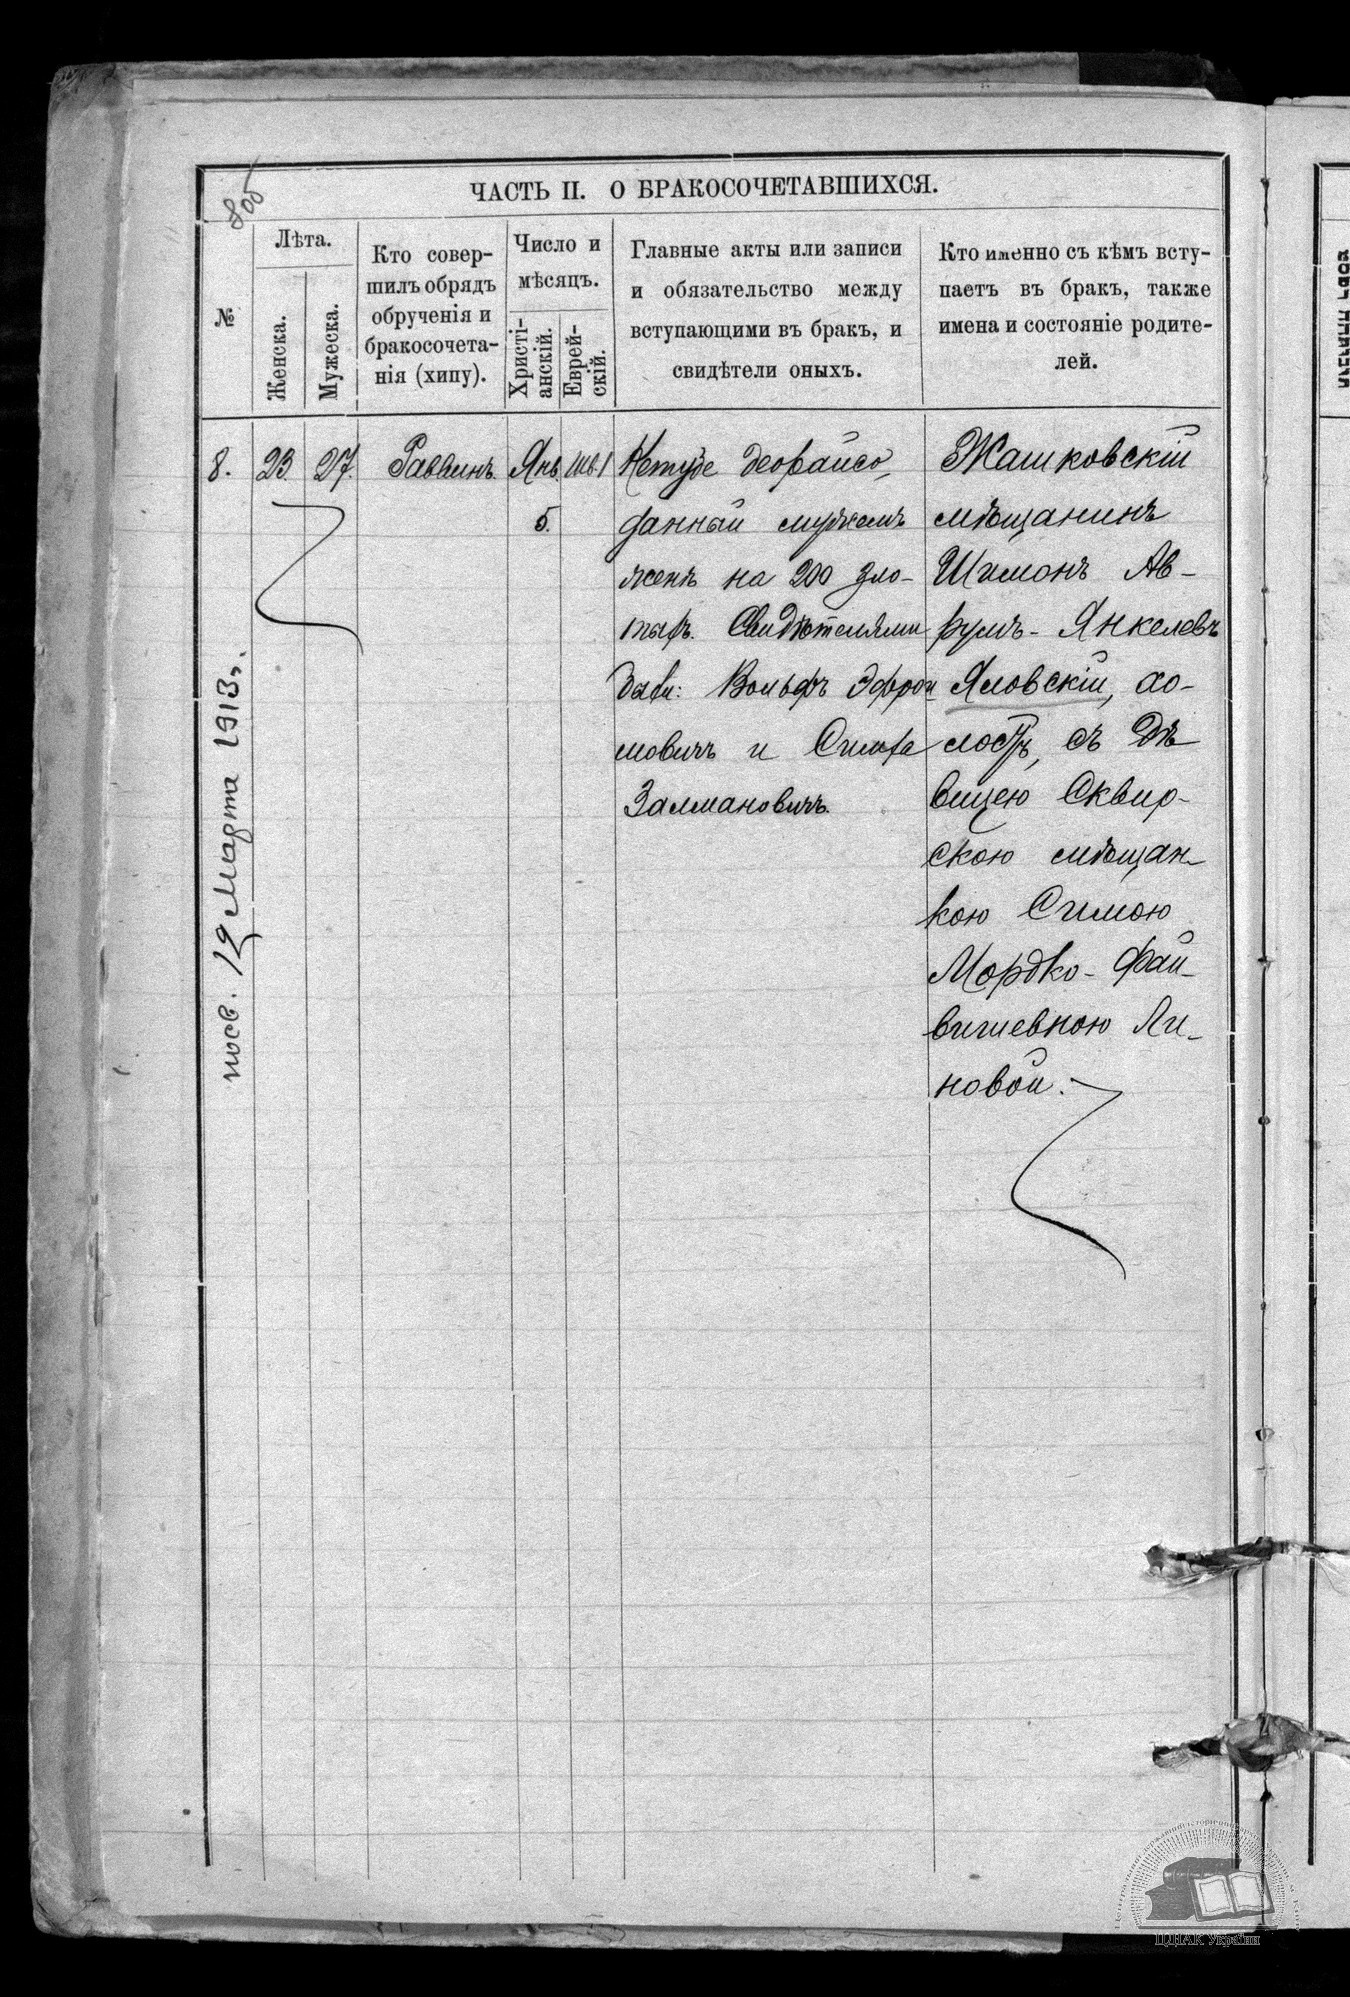 805
ЧАСТЬ II. О БРАКОСОЧЕТАВШИХСЯ.
№
Лѣта.
Женска.
Мужеска.
Кто совер-
шилъ обрядъ
обрученія и
бракосочета-
нія (хипу).
Число и
мѣсяцъ.
Христі-
анскій.
Еврей-
скій.
Главные акты или записи
и обязательство между
вступающими въ бракъ, и
свидѣтели оныхъ.
Кто именно съ кѣмъ всту-
паетъ въ бракъ, также
имена и состояніе родите-
лей.
8.
23.
27.
Раввинъ.
Янв.
5.
Шв. 1
Кетубе деорайсо,
данный мужемъ
женѣ на 200 зло-
тыхъ. Свидѣтелями
были: Вольфъ Эфрои
мовичъ и Симха
Залмановичъ.
Жашковскій
мѣщанинъ
Шимонъ Ав-
румъ-Янкелевъ
Яловскій, хо-
лостъ, съ дѣ
вицею Сквир-
скою мѣщан-
кою Симою
Мордко-Фай-
вишевною Ли-
новой.
посв. 19 Марта 1913.
ЦДІАК України